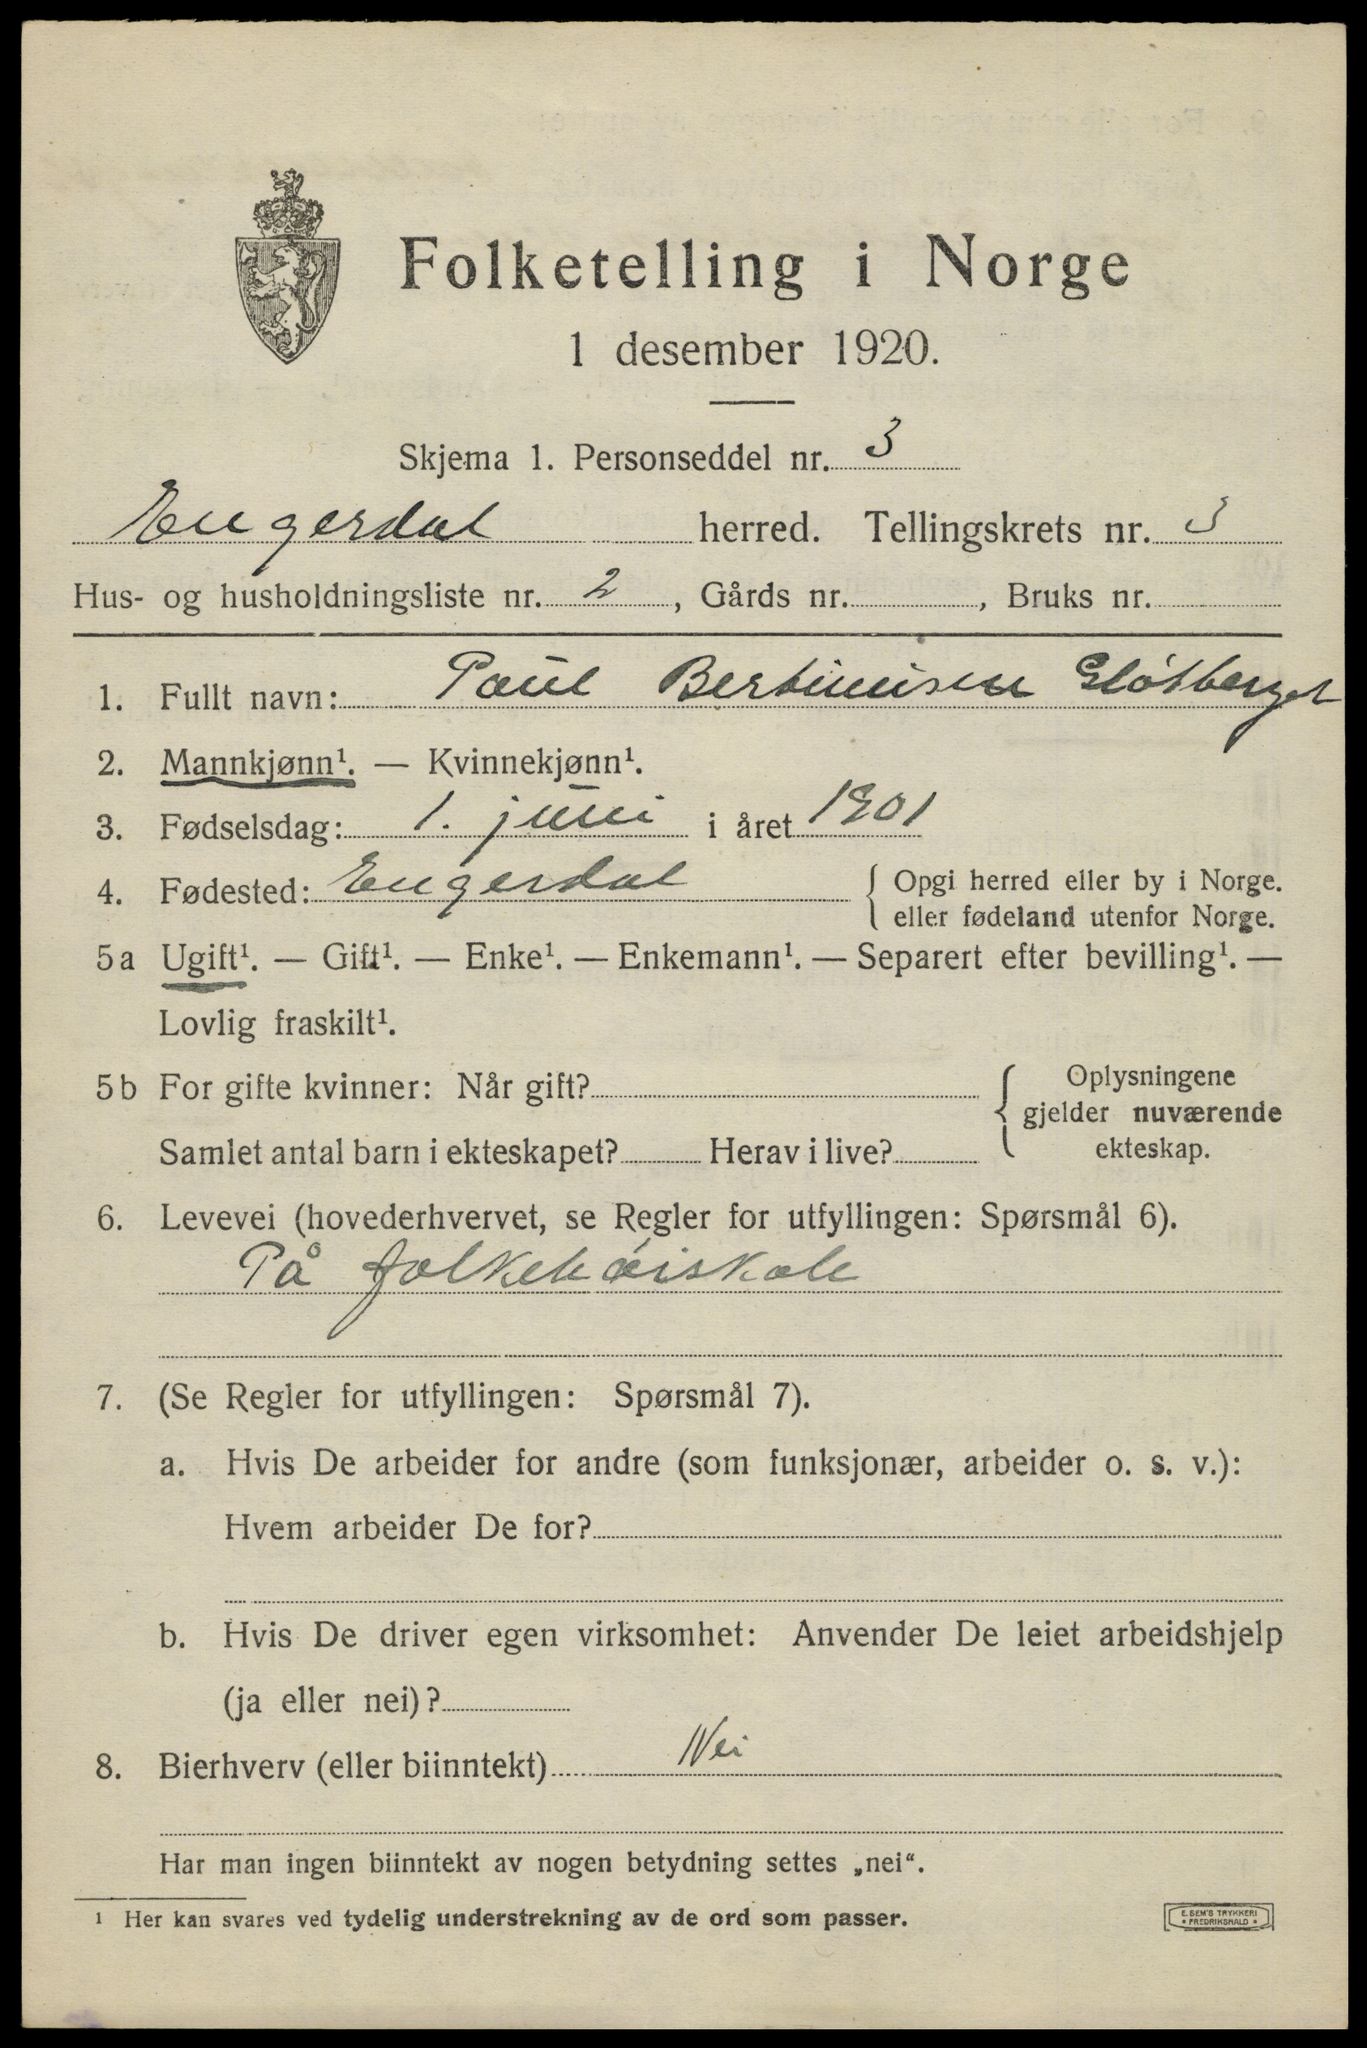 Folketelling i Norge
1 desember 1920.
Skjema 1. Personseddel nr. 3
Engerdal herred. Tellingskrets nr. 3
Hus- og husholdningsliste nr. 2, Gårds nr. , Bruks nr.
1. Fullt navn: Paul Bertinusen Gløtberget
2. Mannkjønn¹. — Kvinnekjønn¹.
3. Fødselsdag: 1. juni i året 1901
4. Fødested: Engerdal { Opgi herred eller by i Norge.
eller fødeland utenfor Norge.
5a Ugift¹. — Gift¹. — Enke¹. — Enkemann¹. — Separert efter bevilling¹. —
Lovlig fraskilt¹.
5b For gifte kvinner: Når gift? { Oplysningene
gjelder nuværende
Samlet antal barn i ekteskapet? Herav i live? ekteskap.
6. Levevei (hovederhvervet, se Regler for utfyllingen: Spørsmål 6).
På folkehøiskole
7. (Se Regler for utfyllingen: Spørsmål 7).
a. Hvis De arbeider for andre (som funksjonær, arbeider o. s. v.):
Hvem arbeider De for?
b. Hvis De driver egen virksomhet: Anvender De leiet arbeidshjelp
(ja eller nei)?
8. Bierhverv (eller biinntekt) Nei
Har man ingen biinntekt av nogen betydning settes „nei“.
¹ Her kan svares ved tydelig understrekning av de ord som passer.
E. SEM'S TRYKKERI
• FREDRIKSHALD •